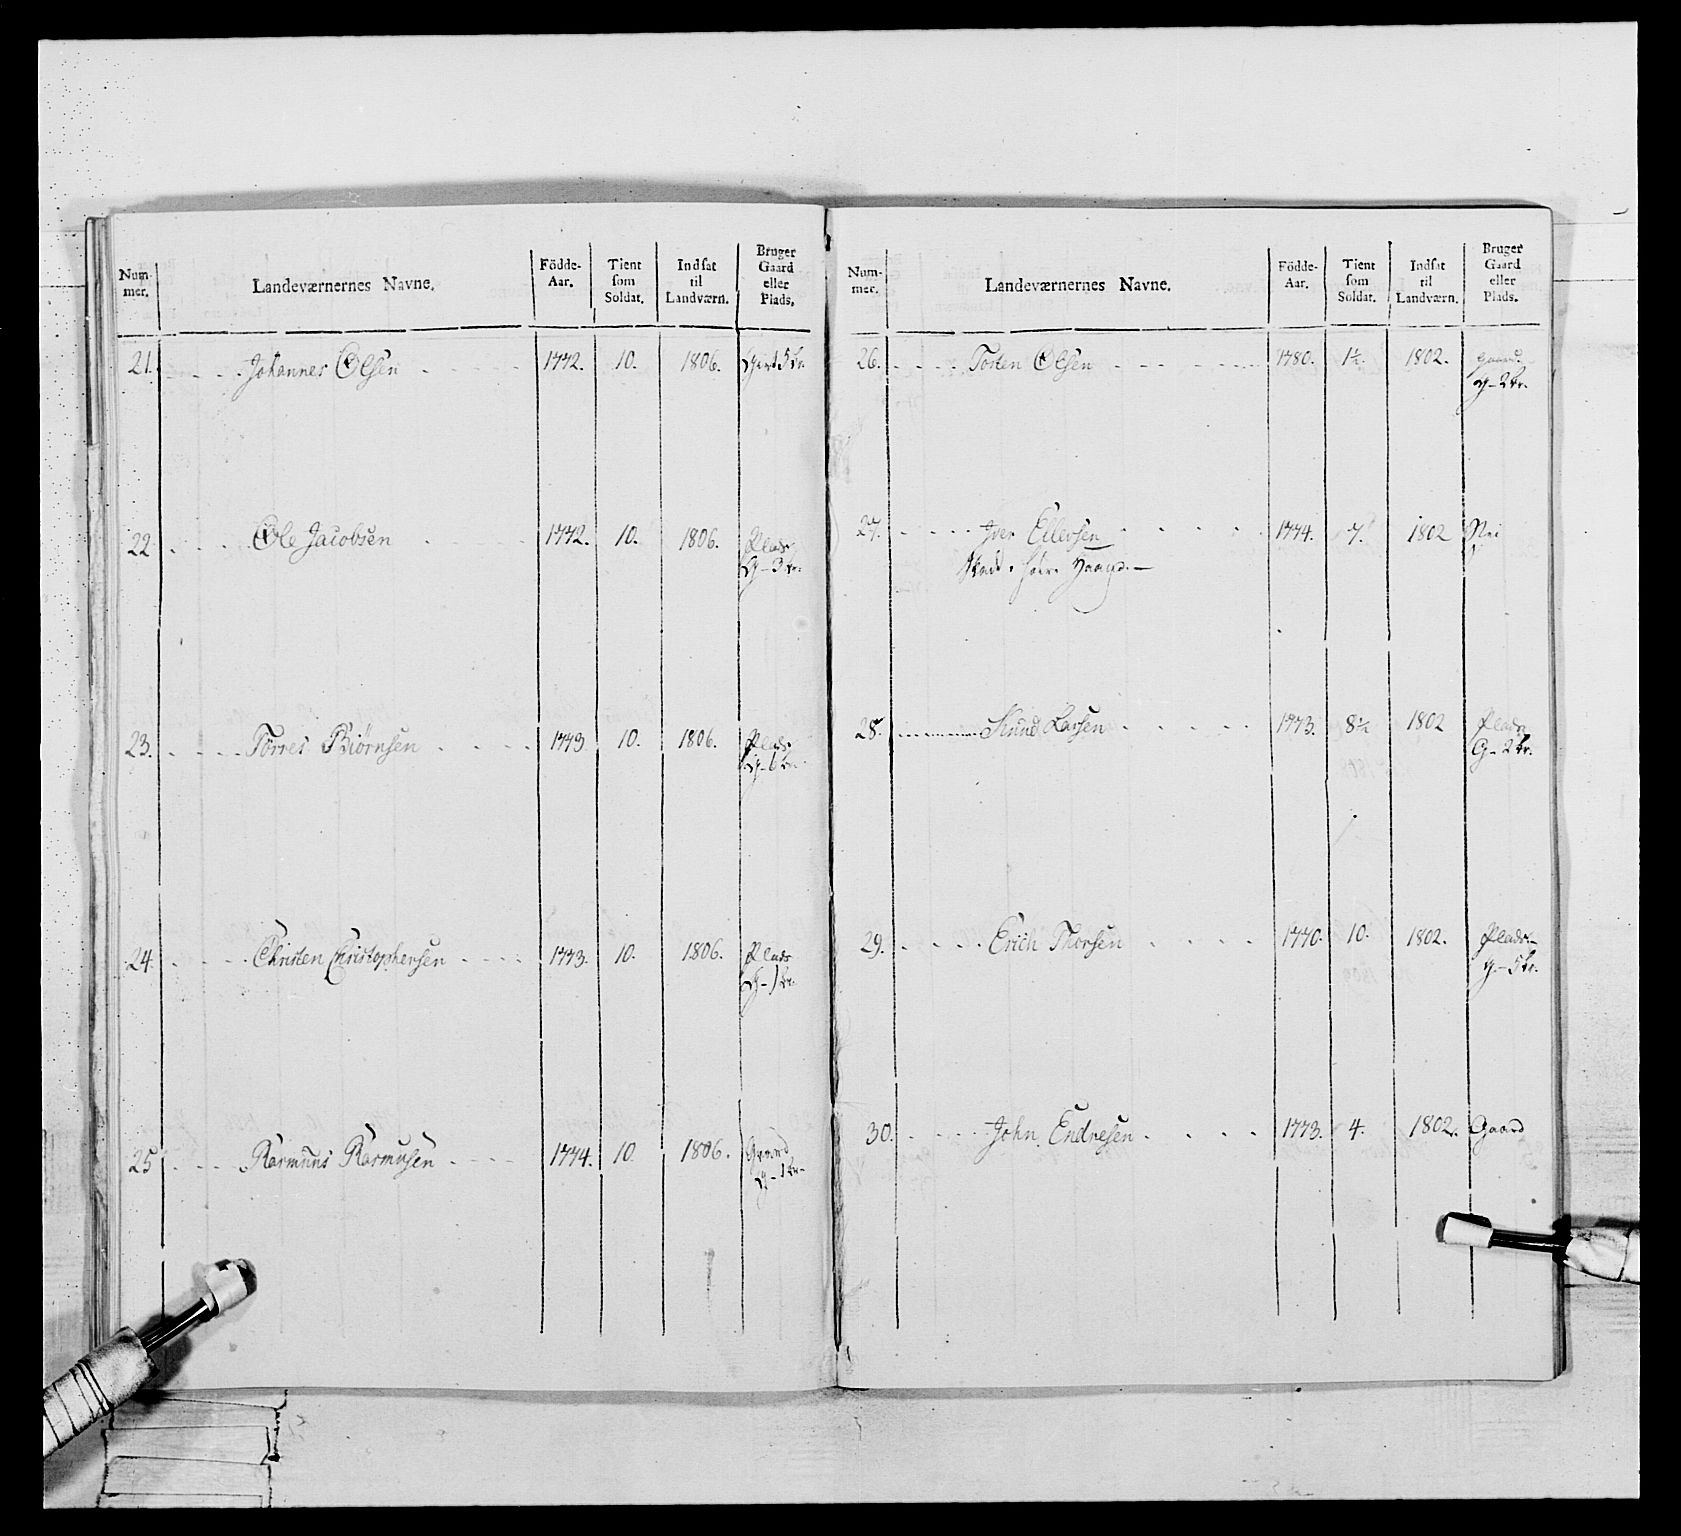 Num-mer. Landeværnernes Navne. Födde-Aar. Tient som Soldat. Indsat til Landværn. Bruger Gaard eller Plads.
21. Johannes Olsen 1772. 10. 1806.
22 Ole Jacobsen 1772. 10. 1806. Plads
G - 3 br.
23. Torres Biörnsen 1773 10. 1806. Plads
24. Christen Christophersen 1773. 10. 1806. Plads
G - 1 br.
25 Rasmus Rasmusen 1774. 10 1806. Gaard
G - 1 br.
Num-mer. Landeværnernes Navne. Födde-Aar. Tient som Soldat. Indsat til Landværn. Bruger Gaard eller Plads.
26. Tosten Olsen 1780. 1½. 1802. Gaard
G - 2 br.
27. Iver Ellevsen 1774. 7. 1802 Nei
Skadt høire Haand.
28. Knud Larsen 1773. 8½ 1802 Plads
G - 2 br.
29. Erich Thorsen 1770. 10. 1802. Plads
G - 5 br.
30. John Endresen 1773. 4. 1802. Gaard